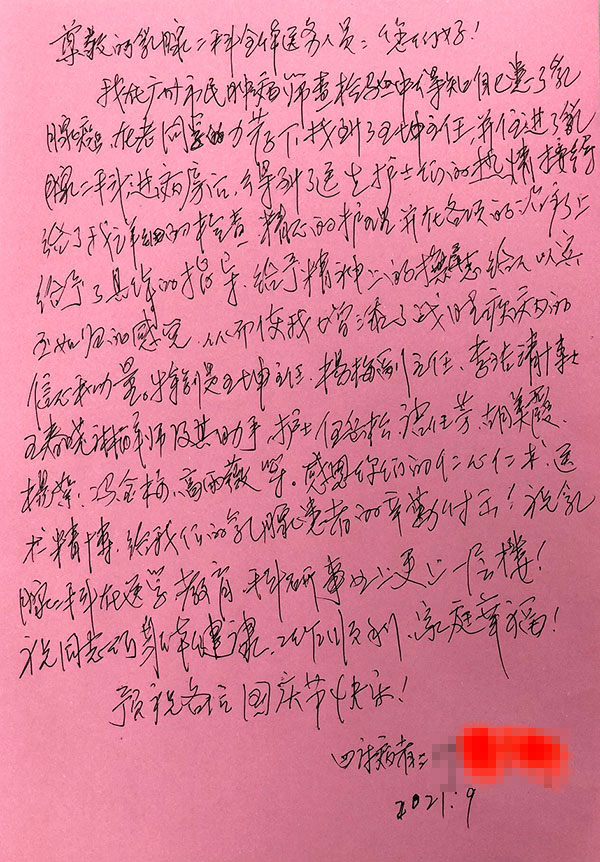 尊敬的乳腺二科全体医务人员：您们好！
我在广州市民肿瘤筛查检验中得知自己患了乳
腺癌。在老同事的力荐下，找到了王坤主任，并住进了乳
腺二科，进病房后，得到了医生护士们的热情接待
给了我详细的检查、精心的护理并在各项的治疗上
给予了具体的指导，给予精神上的抚慰，给人以宾
至如归的感觉，从而使我增添了战胜疾病的
信心和力量。特别是王坤主任、杨梅副主任、李洁靖博士
王春晓 及其助手，护士伍
杨 、冯金梅、高雨薇等。感恩你们的仁心仁术，医
术精博，给我们的乳腺患者的辛勤付出！祝乳
腺二科在医学教育、科研事业上更上一层楼！
祝同志们身体健康，工作顺利，家庭幸福！
预祝各位国庆节快乐！
患者：
2021.9